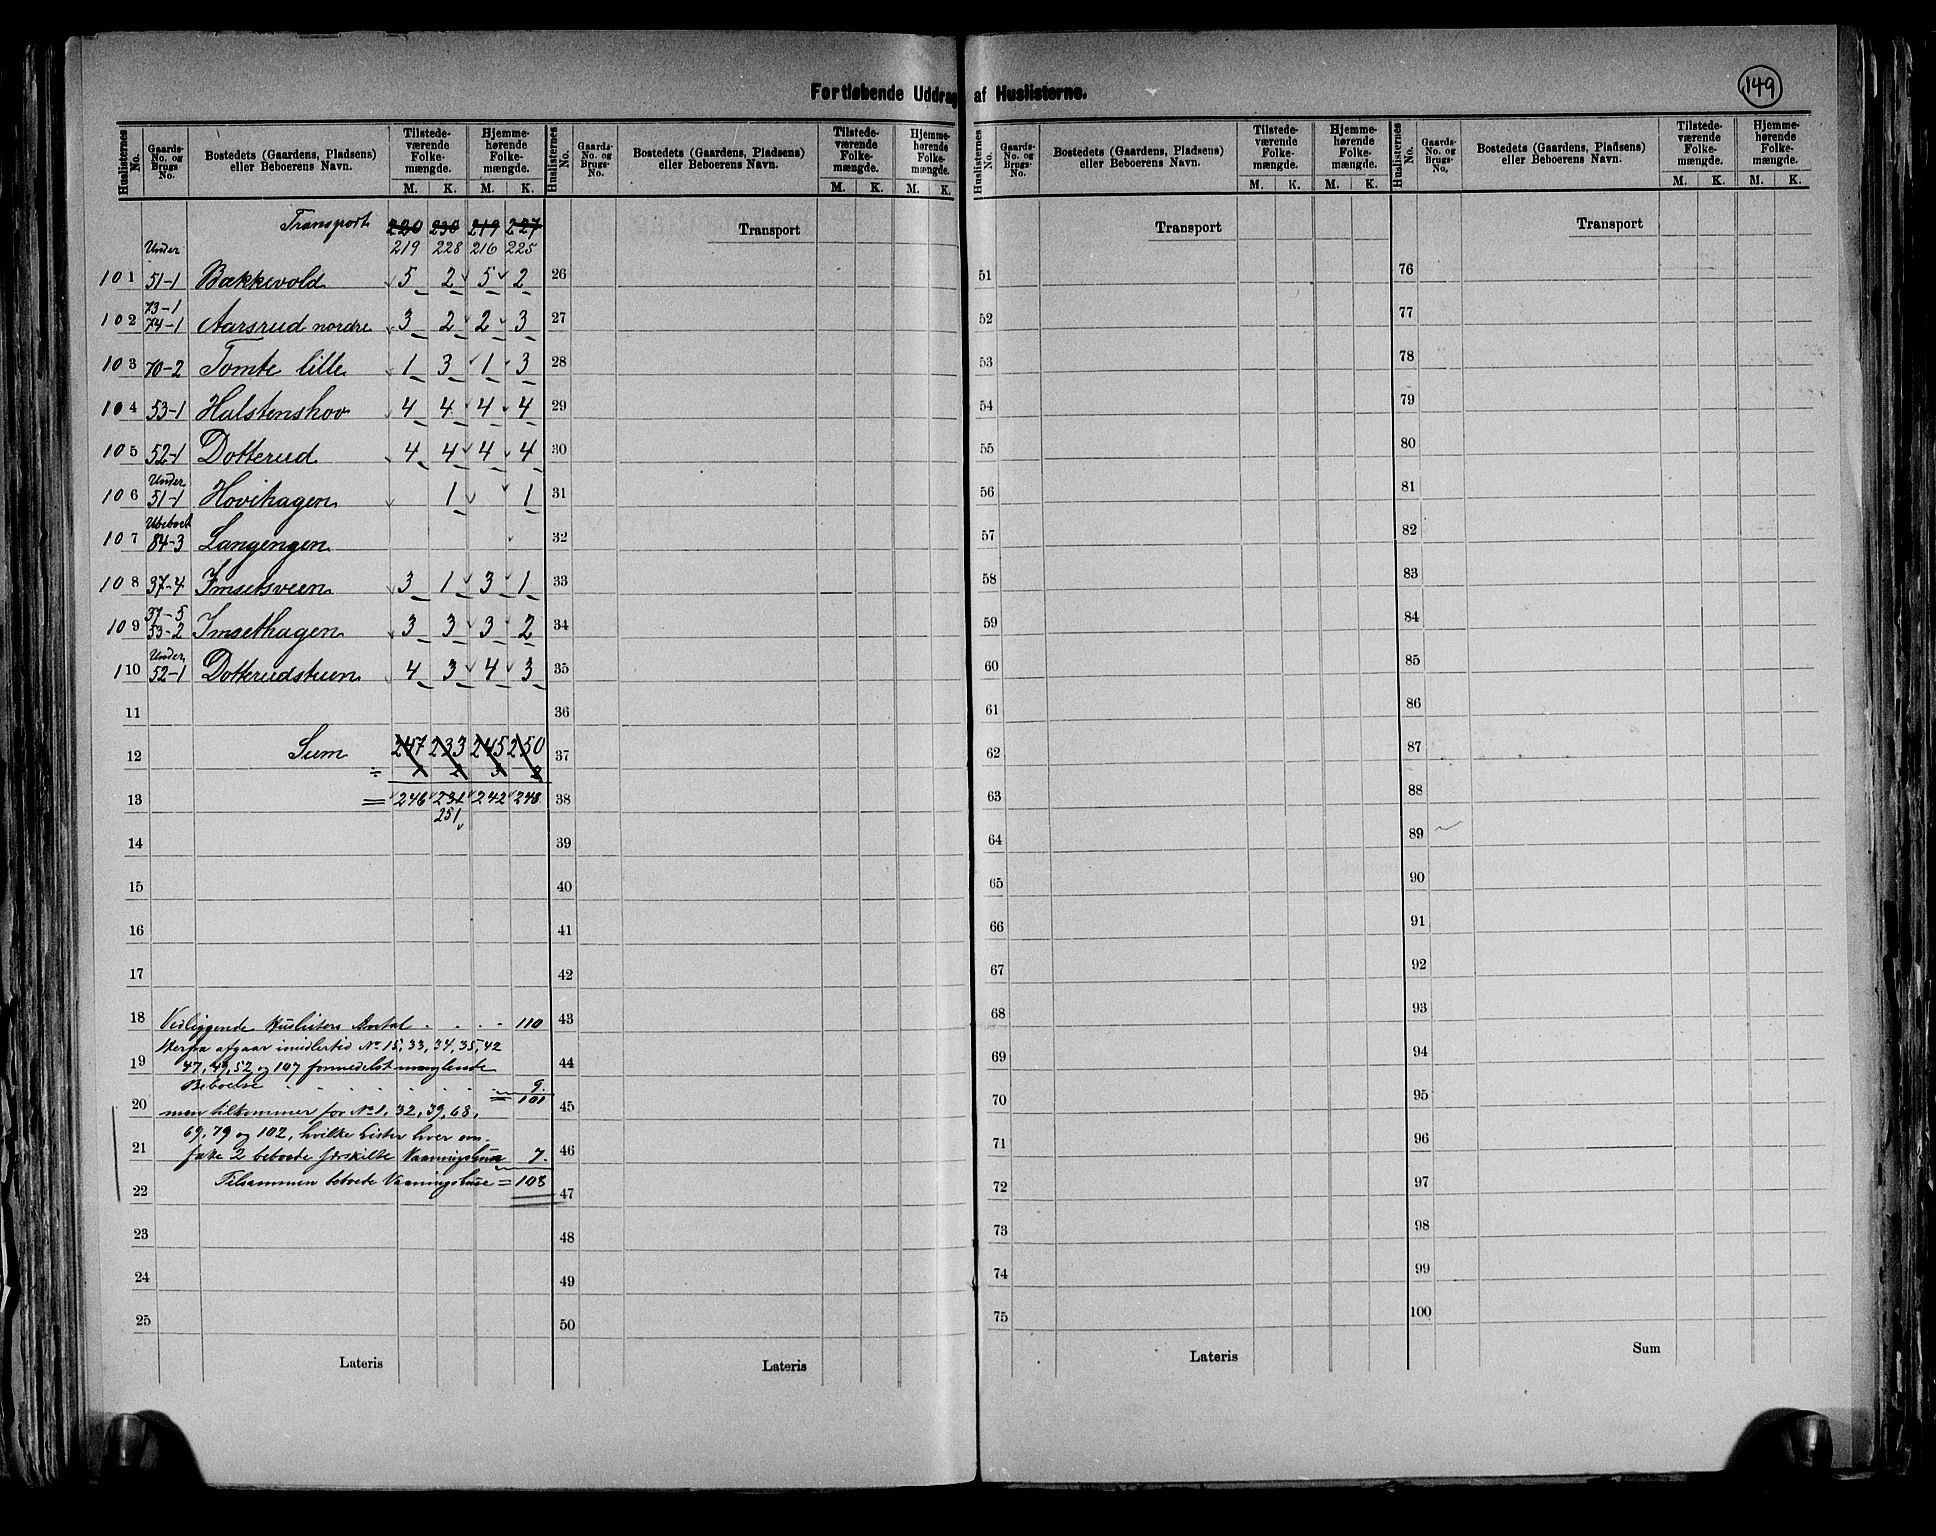 Fortløbende Uddrag af Huslisterne.
149
Huslisternes No. | Gaards-No. og Brugs No. | Bostedets (Gaarden, Pladsens) eller Beboerens Navn. | Tilstede-værende Folke-mængde. M. K. | Hjemme-hørende Folke-mængde. M. K.
Huslisternes No. | Gaards-No. og Brugs-No. | Bostedets (Gaarden, Pladsens) eller Beboerens Navn. | Tilstede-værende Folke-mængde. M. K. | Hjemme-hørende Folke-mængde. M. K.
Huslisternes No. | Gaards-No. og Brugs-No. | Bostedets (Gaarden, Pladsens) eller Beboerens Navn. | Tilstede-værende Folke-mængde. M. K. | Hjemme-hørende Folke-mængde. M. K.
Huslisternes No. | Gaards-No. og Brugs-No. | Bostedets (Gaarden, Pladsens) eller Beboerens Navn. | Tilstede-værende Folke-mængde. M. K. | Hjemme-hørende Folke-mængde. M. K.
Transport 220 230 219 227 Transport Transport Transport
219 228 216 225
Under
101 51-1 Bakkevold 5 2 5 2 26 51 76
73-1
102 74-1 Aarsrud nordre 3 2 2 3 27 52 77
103 70-2 Tomte lille 1 3 1 3 28 53 78
104 53-1 Halstenshov 4 4 4 4 29 54 79
105 52-1 Dotterud 4 4 4 4 30 55 80
Under
106 51-1 Hovihagen 1 1 31 56 81
Ubeboet
107 84-3 Langengen 32 57 82
108 37-4 Imsetsveen 3 1 3 1 33 58 83
37-5
109 53-2 Imsethagen 3 3 3 2 34 59 84
Under
110 52-1 Dotterudstuen 4 3 4 3 35 60 85
11 36 61 86
12 Sum 247 233 245 250 37 62 87
÷
13 = 246 231 242 248 38 63 88
251
14 39 64 89
15 40 65 90
16 41 66 91
17 42 67 92
18 Vedliggende Huslisters Antal 110 43 68 93
Herfra afgaar imidlertid No 15, 33, 34, 35, 42
19 47, 49, 52 og 107 formedelst manglende 44 69 94
Beboelse 9.
= 101
20 men tilkommer for No 1, 32, 39, 68, 45 70 95
69, 79 og 102, hvilke Lister hver om-
21 fatte 2 beboede særskilte Vaaningshuse 7. 46 71 96
22 Tilsammen beboede Vaaningshuse = 108 47 72 97
23 48 73 98
24 49 74 99
25 50 75 100
Lateris Lateris Lateris Sum